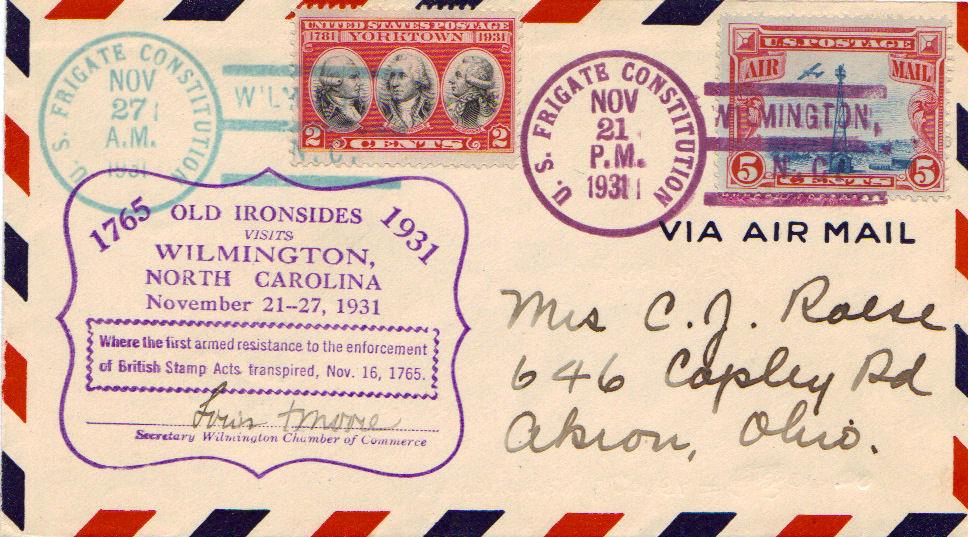 U. S. FRIGATE CONSTITUTION
NOV
27
A.M.
1931
WILM
N.C.
UNITED STATES POSTAGE
1781 YORKTOWN 1931
2 CENTS 2
U. S. FRIGATE CONSTITUTION
NOV
21
P.M.
1931
WILMINGTON,
N. C.
U.S. POSTAGE
AIR MAIL
5 CENTS 5
VIA AIR MAIL
1765 OLD IRONSIDES 1931
VISITS
WILMINGTON,
NORTH CAROLINA
November 21--27, 1931
Where the first armed resistance to the enforcement
of British Stamp Acts transpired, Nov. 16, 1765.
Louis T Moore
Secretary Wilmington Chamber of Commerce
Mrs C. J. Roese
646 Copley Rd
Akron, Ohio.